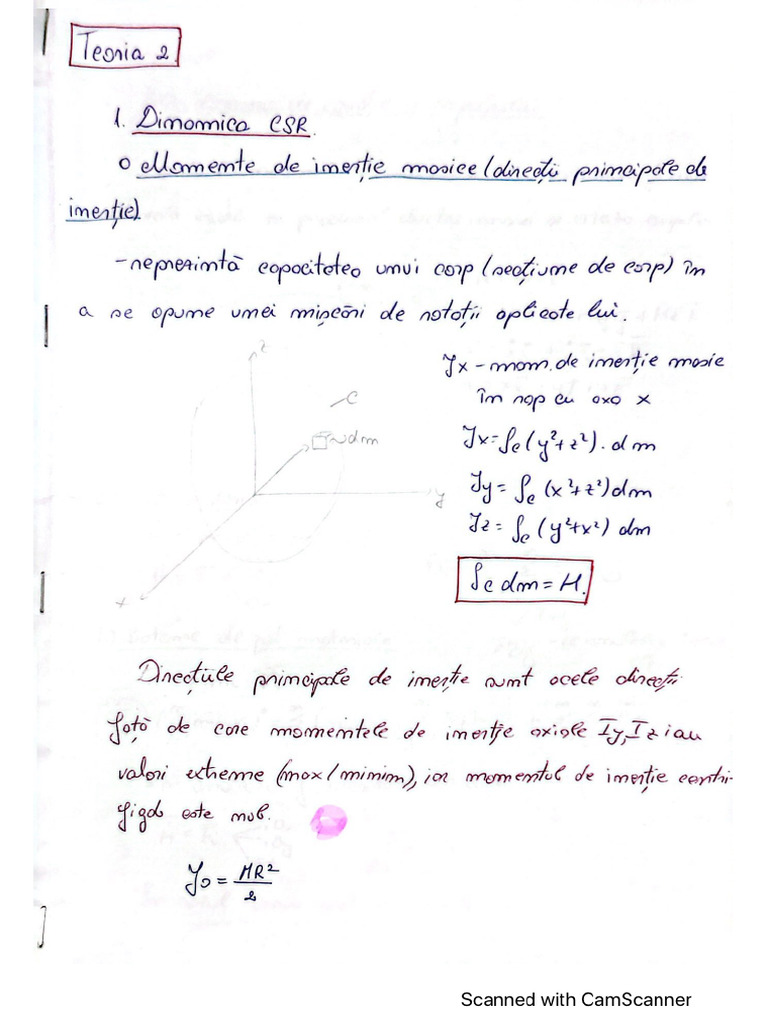 Teoria 2
1. Dinamica CSR.
o Momente de inerție masice (direcții principale de
inerție)
- reprezintă capacitatea unui corp (secțiune de corp) în
a se opune unei mișcări de rotații aplicate lui.
z
C
dm
y
x
Jx - mom. de inerție masic
în rap cu axa x
Jx = ∫c (y²+z²). dm
Jy = ∫c (x²+z²) dm
Jz = ∫c (y²+x²) dm
∫c dm = M.
Direcțiile principale de inerție sunt acele direcții
față de care momentele de inerție axiale Iy, Iz iau
valori extreme (max/minim), iar momentul de inerție centri-
figal este nul.
Jo = MR²/2
Scanned with CamScanner